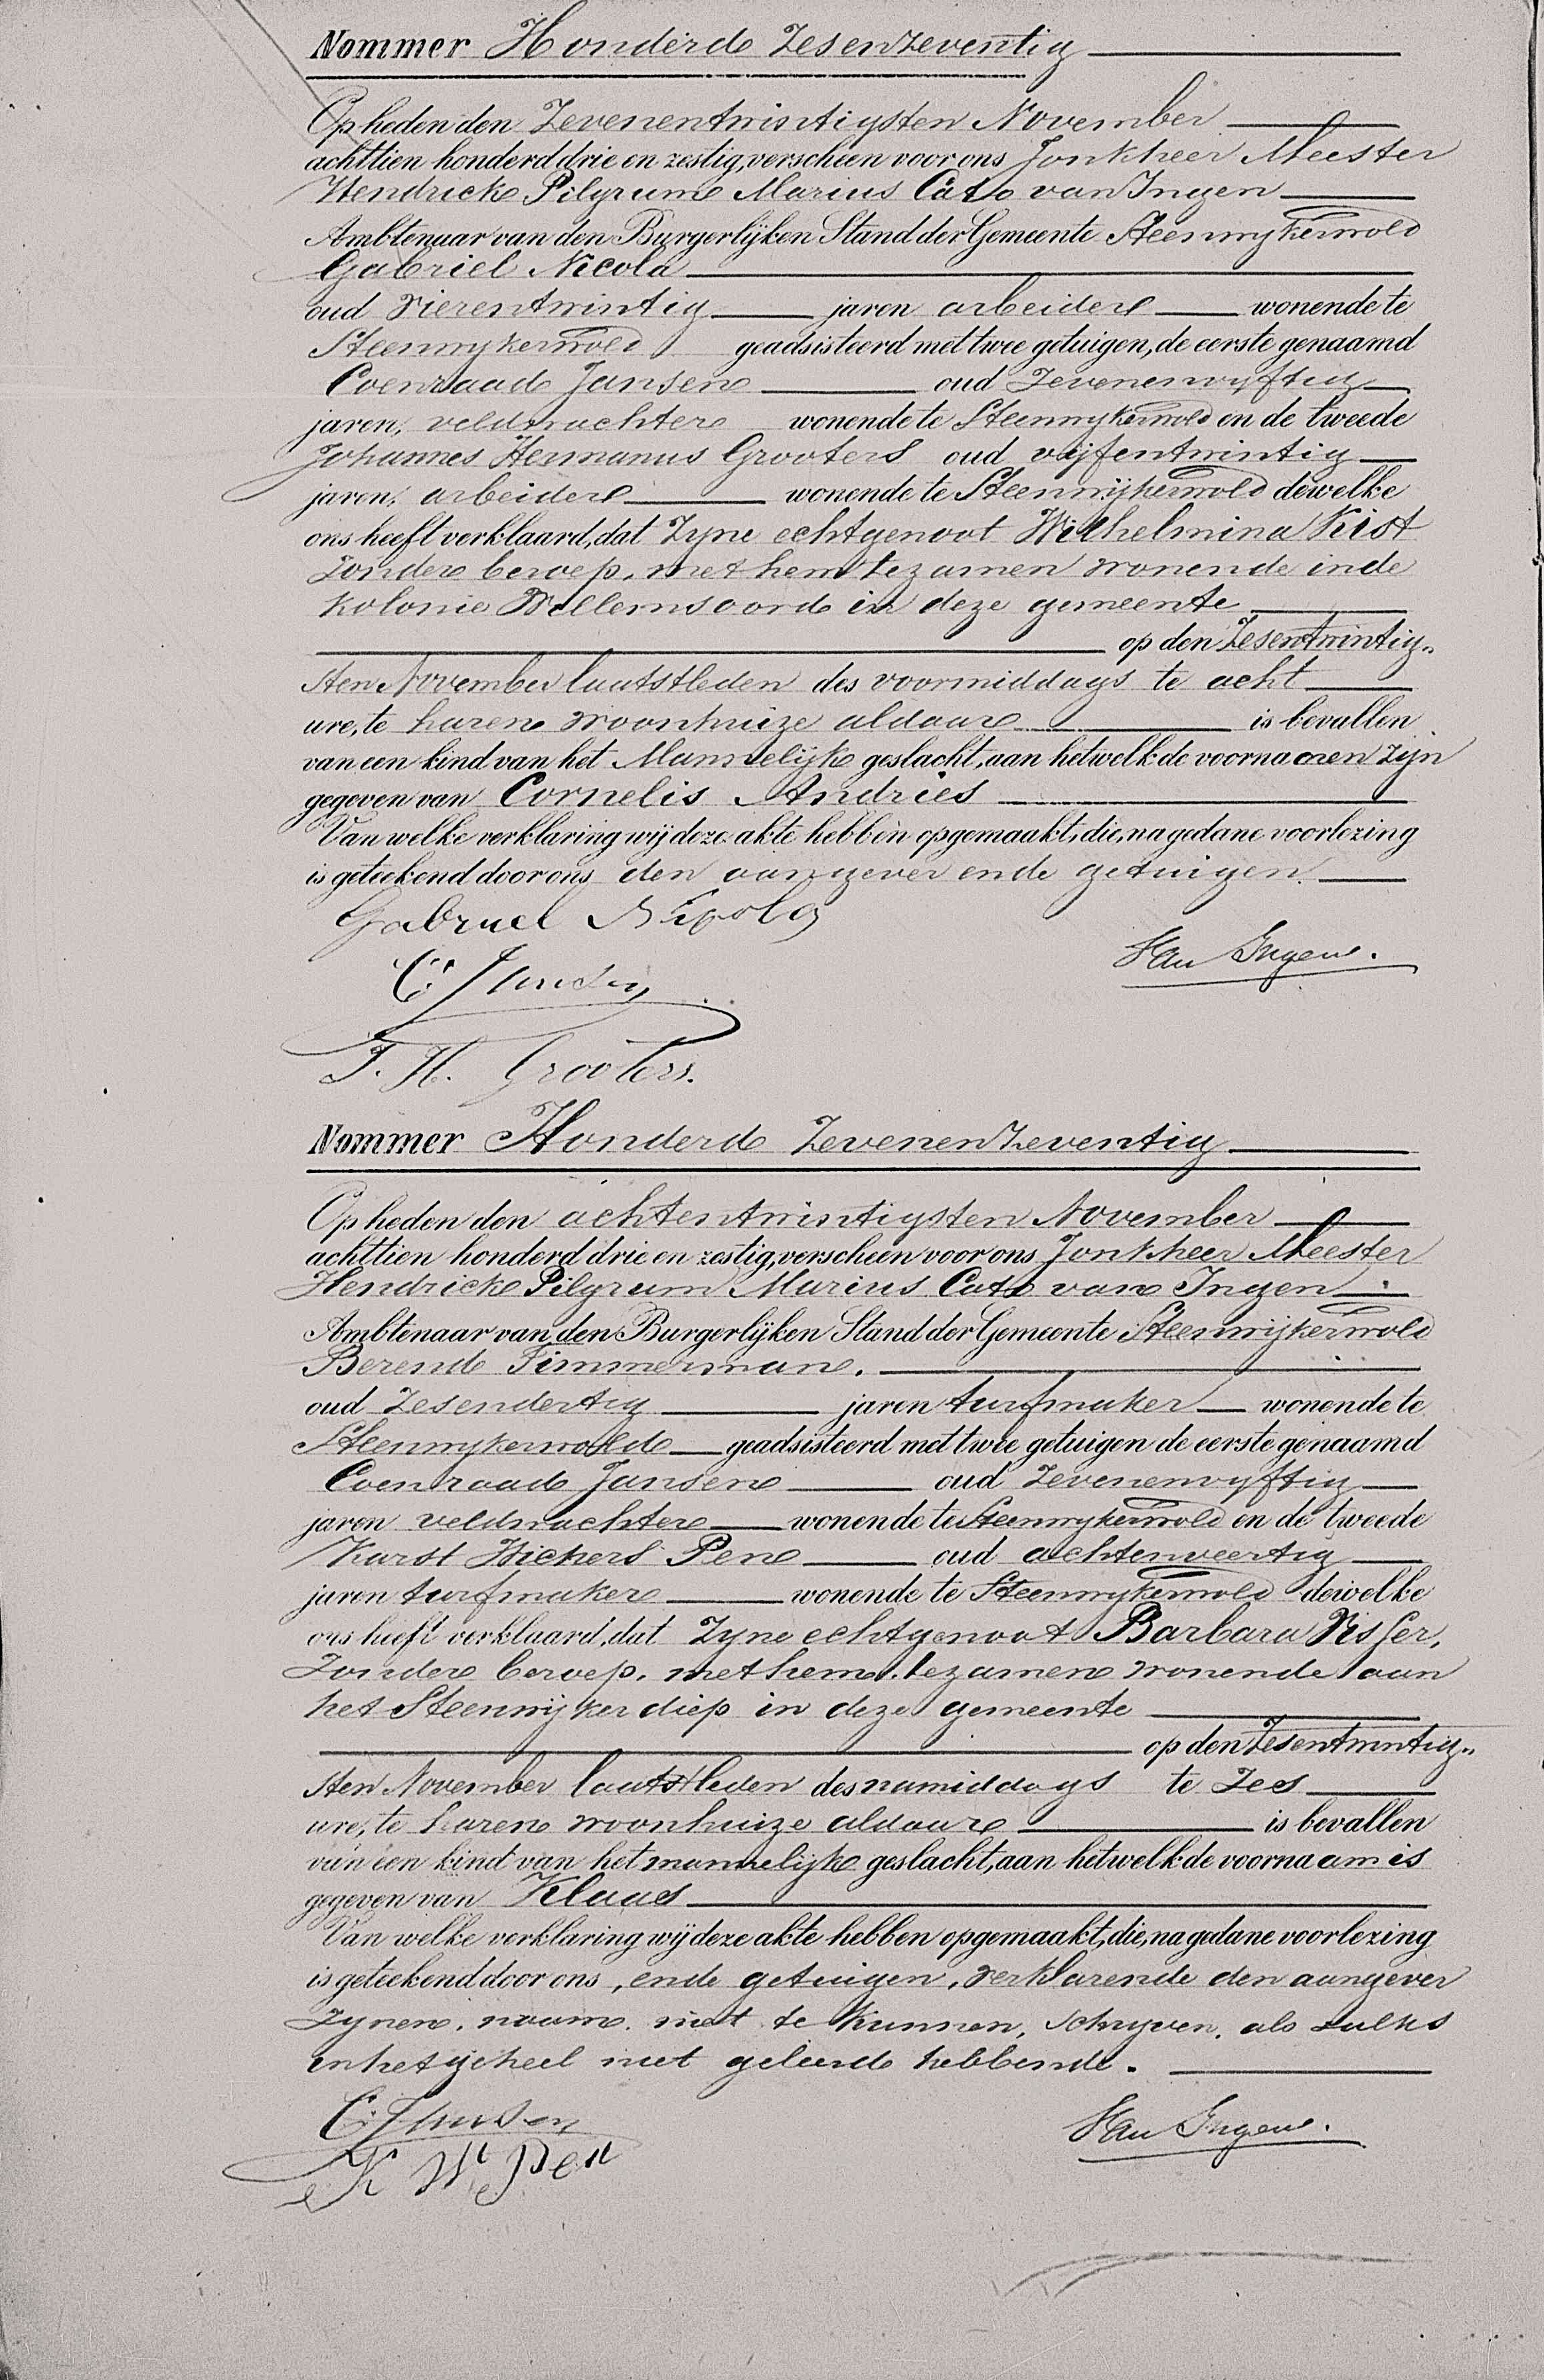 Nommer Honderd Zesenzeventig
Op heden den Zevenentwintigsten November
achttien honderd drie en zestig, verscheen voor ons Jonkheer Meester
Hendrick Pilgrum Marius Cato van Ingen
Ambtenaar van den Burgerlijken Stand der Gemeente Steenwykerwold
Gabriel Nicola
oud vierentwintig jaren arbeider wonende te
Steenwykerwold geadsisteerd met twee getuigen, de eerste genaamd
Coenraad Jansen oud Zevenenvyftig
jaren, veldwachter wonende te Steenwykerwold en de tweede
Johannes Hermanus Grooters oud vijfentwintig
jaren, arbeider wonende te Steenwijkerwold dewelke
ons heeft verklaard, dat Zyne echtgenoot Wilhelmina Kist
Zonder beroep, met hem tezamen wonende in de
Kolonie Willemsoord in deze gemeente
op den Zesentwintig„
sten November laatstleden des voormiddags te acht
ure, te haren woonhuize aldaar is bevallen
van een kind van het Mannelijk geslacht, aan hetwelk de voornamen zijn
gegeven van Cornelis Andries
Van welke verklaring wij deze akte hebben opgemaakt, die, na gedane voorlezing
is geteekend door ons den aangever en de getuigen.
Gabriel Nicola
C. Jansen
Van Ingen.
J. H. Grooters.
Nommer Honderd Zevenenzeventig
Op heden den achtentwintigsten November
achttien honderd drie en zestig, verscheen voor ons Jonkheer Meester
Hendrick Pilgrum Marius Cato van Ingen
Ambtenaar van den Burgerlijken Stand der Gemeente Steenwijkerwold
Berend Timmerman.
oud Zesendertig jaren turfmaker wonende te
Steenwykerwold geadsisteerd met twee getuigen de eerste genaamd
Coenraad Jansen oud Zevenenvyftig
jaren veldwachter wonende te Steenwykerwold en de tweede
Karst Wichers Pen oud achtenveertig
jaren turfmaker wonende te Steenwykerwold dewelke
ons heeft verklaard, dat Zyne echtgenoot Barbara Visser,
Zonder beroep, met hem tezamen wonende aan
het Steenwijkerdiep in deze gemeente
op den Zesentwintig„
sten November laatstleden des namiddags te Zes
ure, te haren woonhuize aldaar is bevallen
van een kind van het mannelijk geslacht, aan hetwelk de voornaam is
gegeven van Klaas
Van welke verklaring wij deze akte hebben opgemaakt, die, na gedane voorlezing
is geteekend door ons, en de getuigen, verklarende den aangever
Zynen naam niet te kunnen schryven, als zulks
in het geheel niet geleerd hebbende.
C. Jansen
Van Ingen.
K W Pen